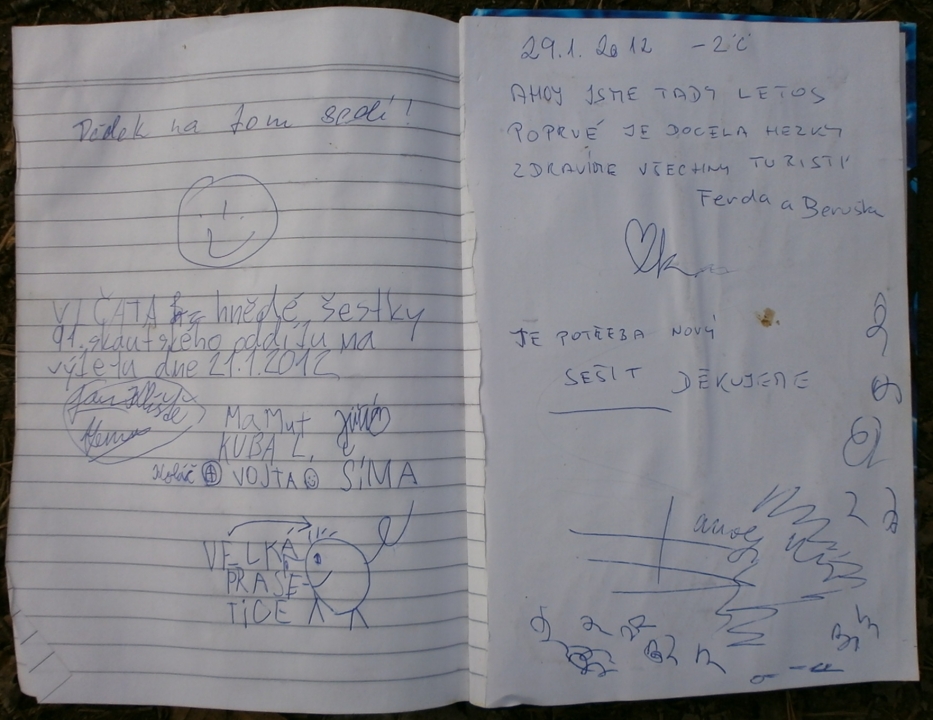 Dědek na tom sedí!
VLČATA hnědé šestky
91. skautského oddílu na
výletu dne 21.1.2012
MaMut Jiří
KUBA L.
Koláč VOJTA SÍMA
VELKÁ
PRASE-
TICE
29.1.2012 -2°C
AHOJ JSME TADY LETOS
POPRVÉ JE DOCELA HEZKY
ZDRAVÍME VŠECHNY TURISTI
Ferda a Beruška
JE POTŘEBA NOVÝ
SEŠIT DĚKUJEME